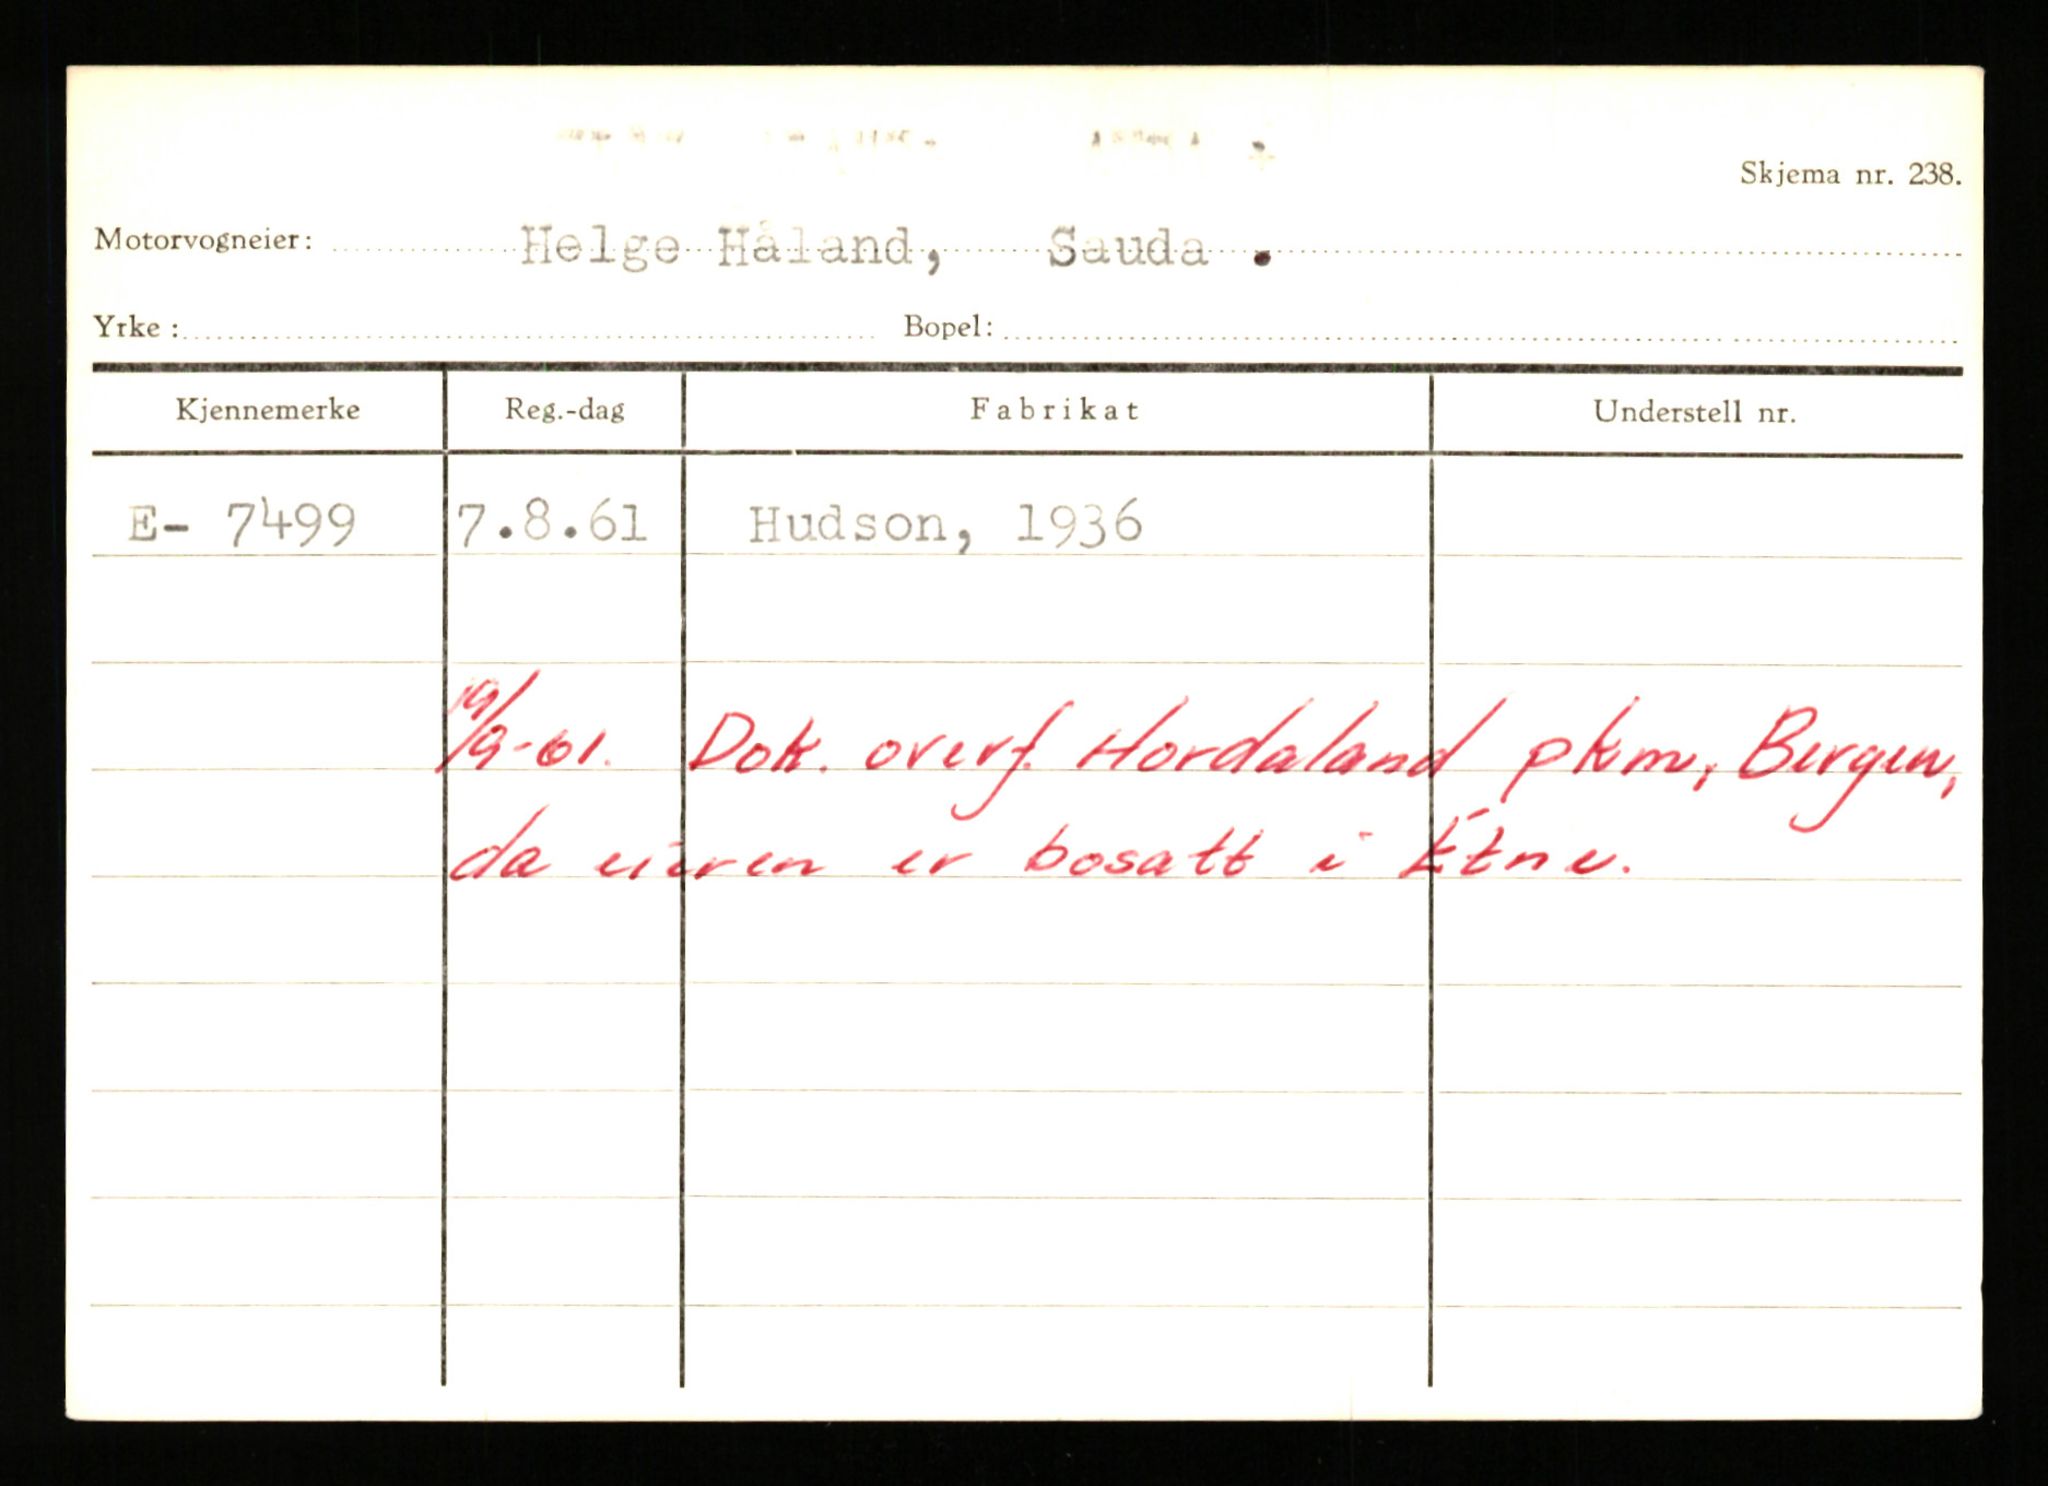 Skjema nr. 238.
Motorvogneier: Helge Håland, Sauda .
Yrke : Bopel:
Kjennemerke Reg.-dag Fabrikat Understell nr.
E- 7499 7.8.61 Hudson, 1936
19/9-61. Dok. overf. Hordaland pkm, Bergen,
da eieren er bosatt i Etne.